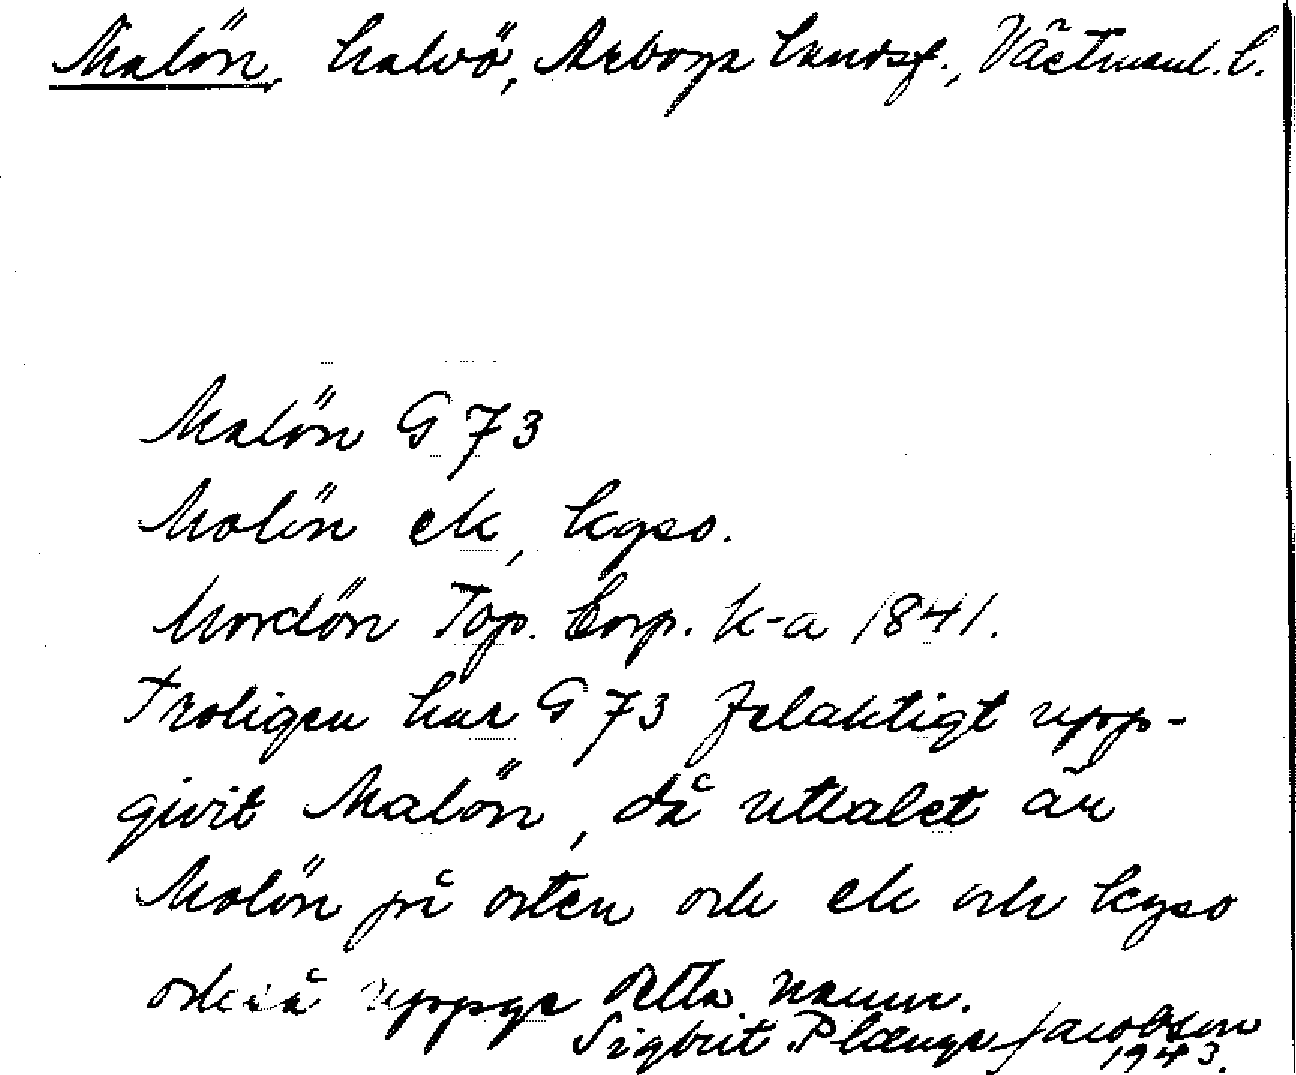 Malön, halvö, Arboga landsf., Västmanl. l.
Malön G 73
Molön ek, hgso.
Mordön Top. Corp. k-a 1841.
Troligen har G 73 felaktigt upp-
givit Malön, då uttalet är
Molön på orten och ek och hgso
också uppge detta namn.
Sigbrit Plænge Jacobson
1943.